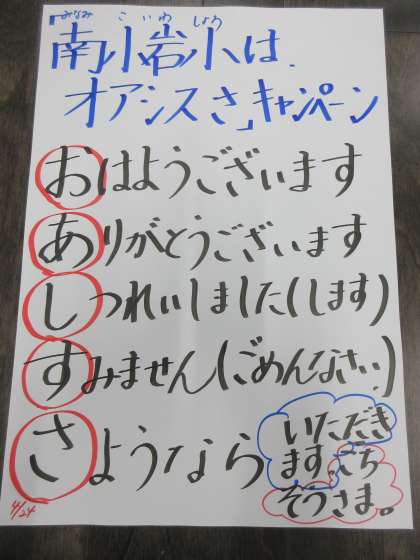 みなみ こいわ しょう
「南小岩小は
オアシスさ」キャンペーン
おはようございます
ありがとうございます
しつれいしました(します)
すみません(ごめんなさい)
さようなら
いただき
ます。ごち
そうさま。
4/24